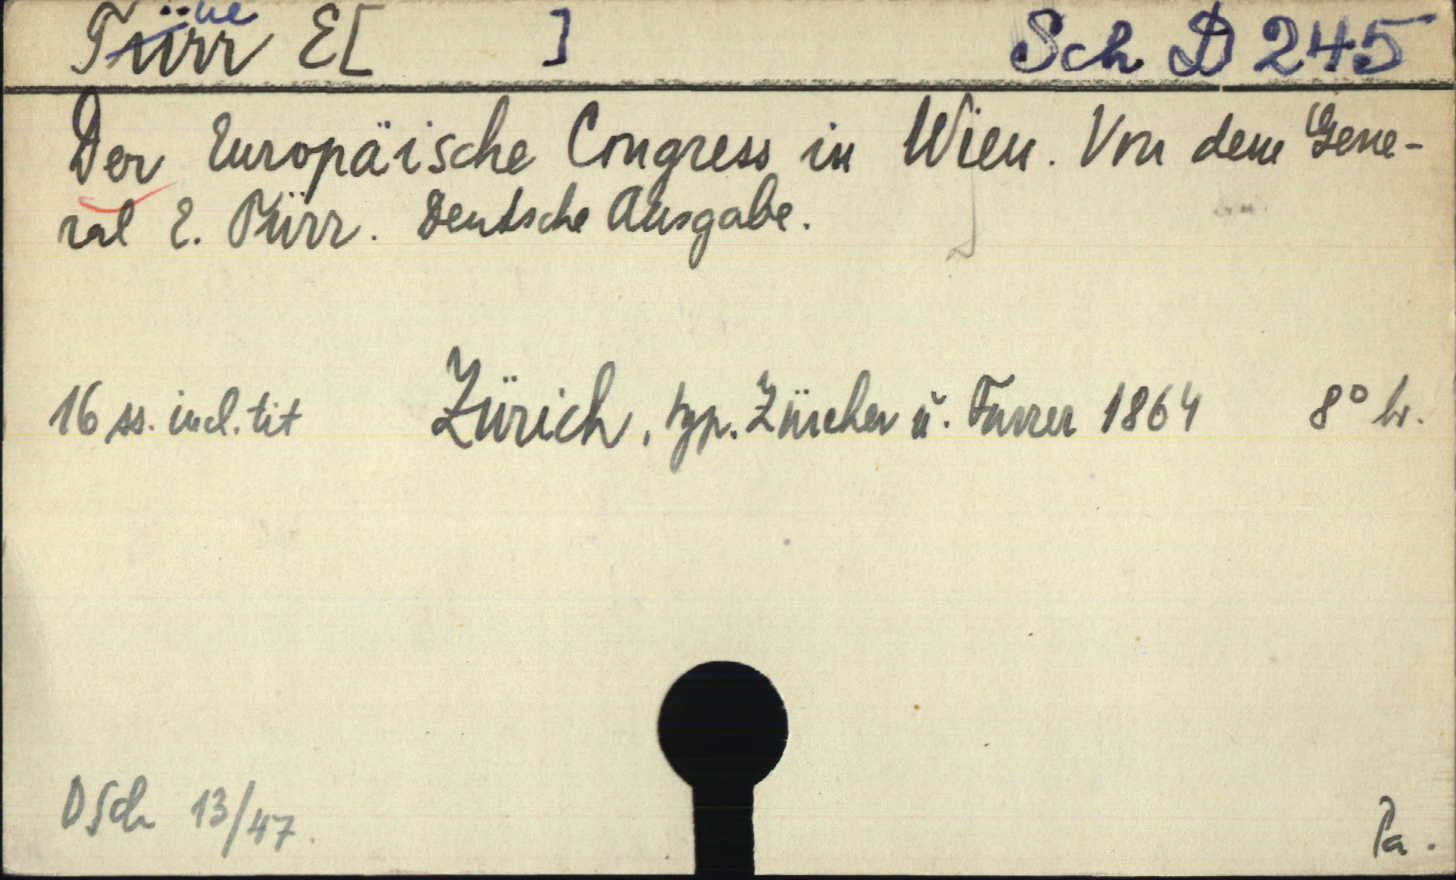 Türr E[ ] Sch D 245
ue
Der Europäische Congress in Wien. Von dem Gene-
ral E. Türr. Deutsche Ausgabe.
16 ss. incl. tit Zürich, typ. Zürcher ŭ. Furrer 1864 8° br.
DSch 13/47.
Pa.